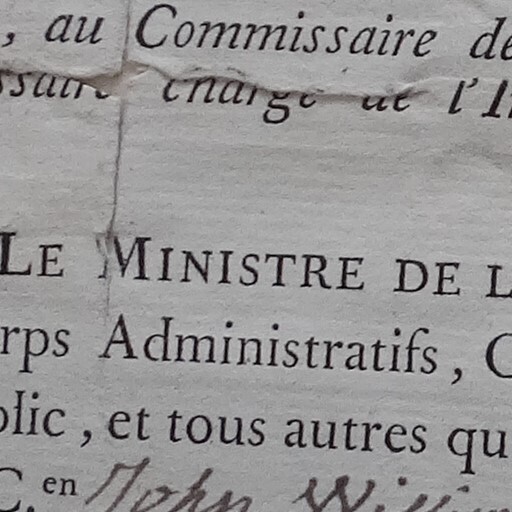 , au Commissaire de
ssaire chargé de l'I
LE MINISTRE DE L
rps Administratifs, C
blic, et tous autres qu
C. en John